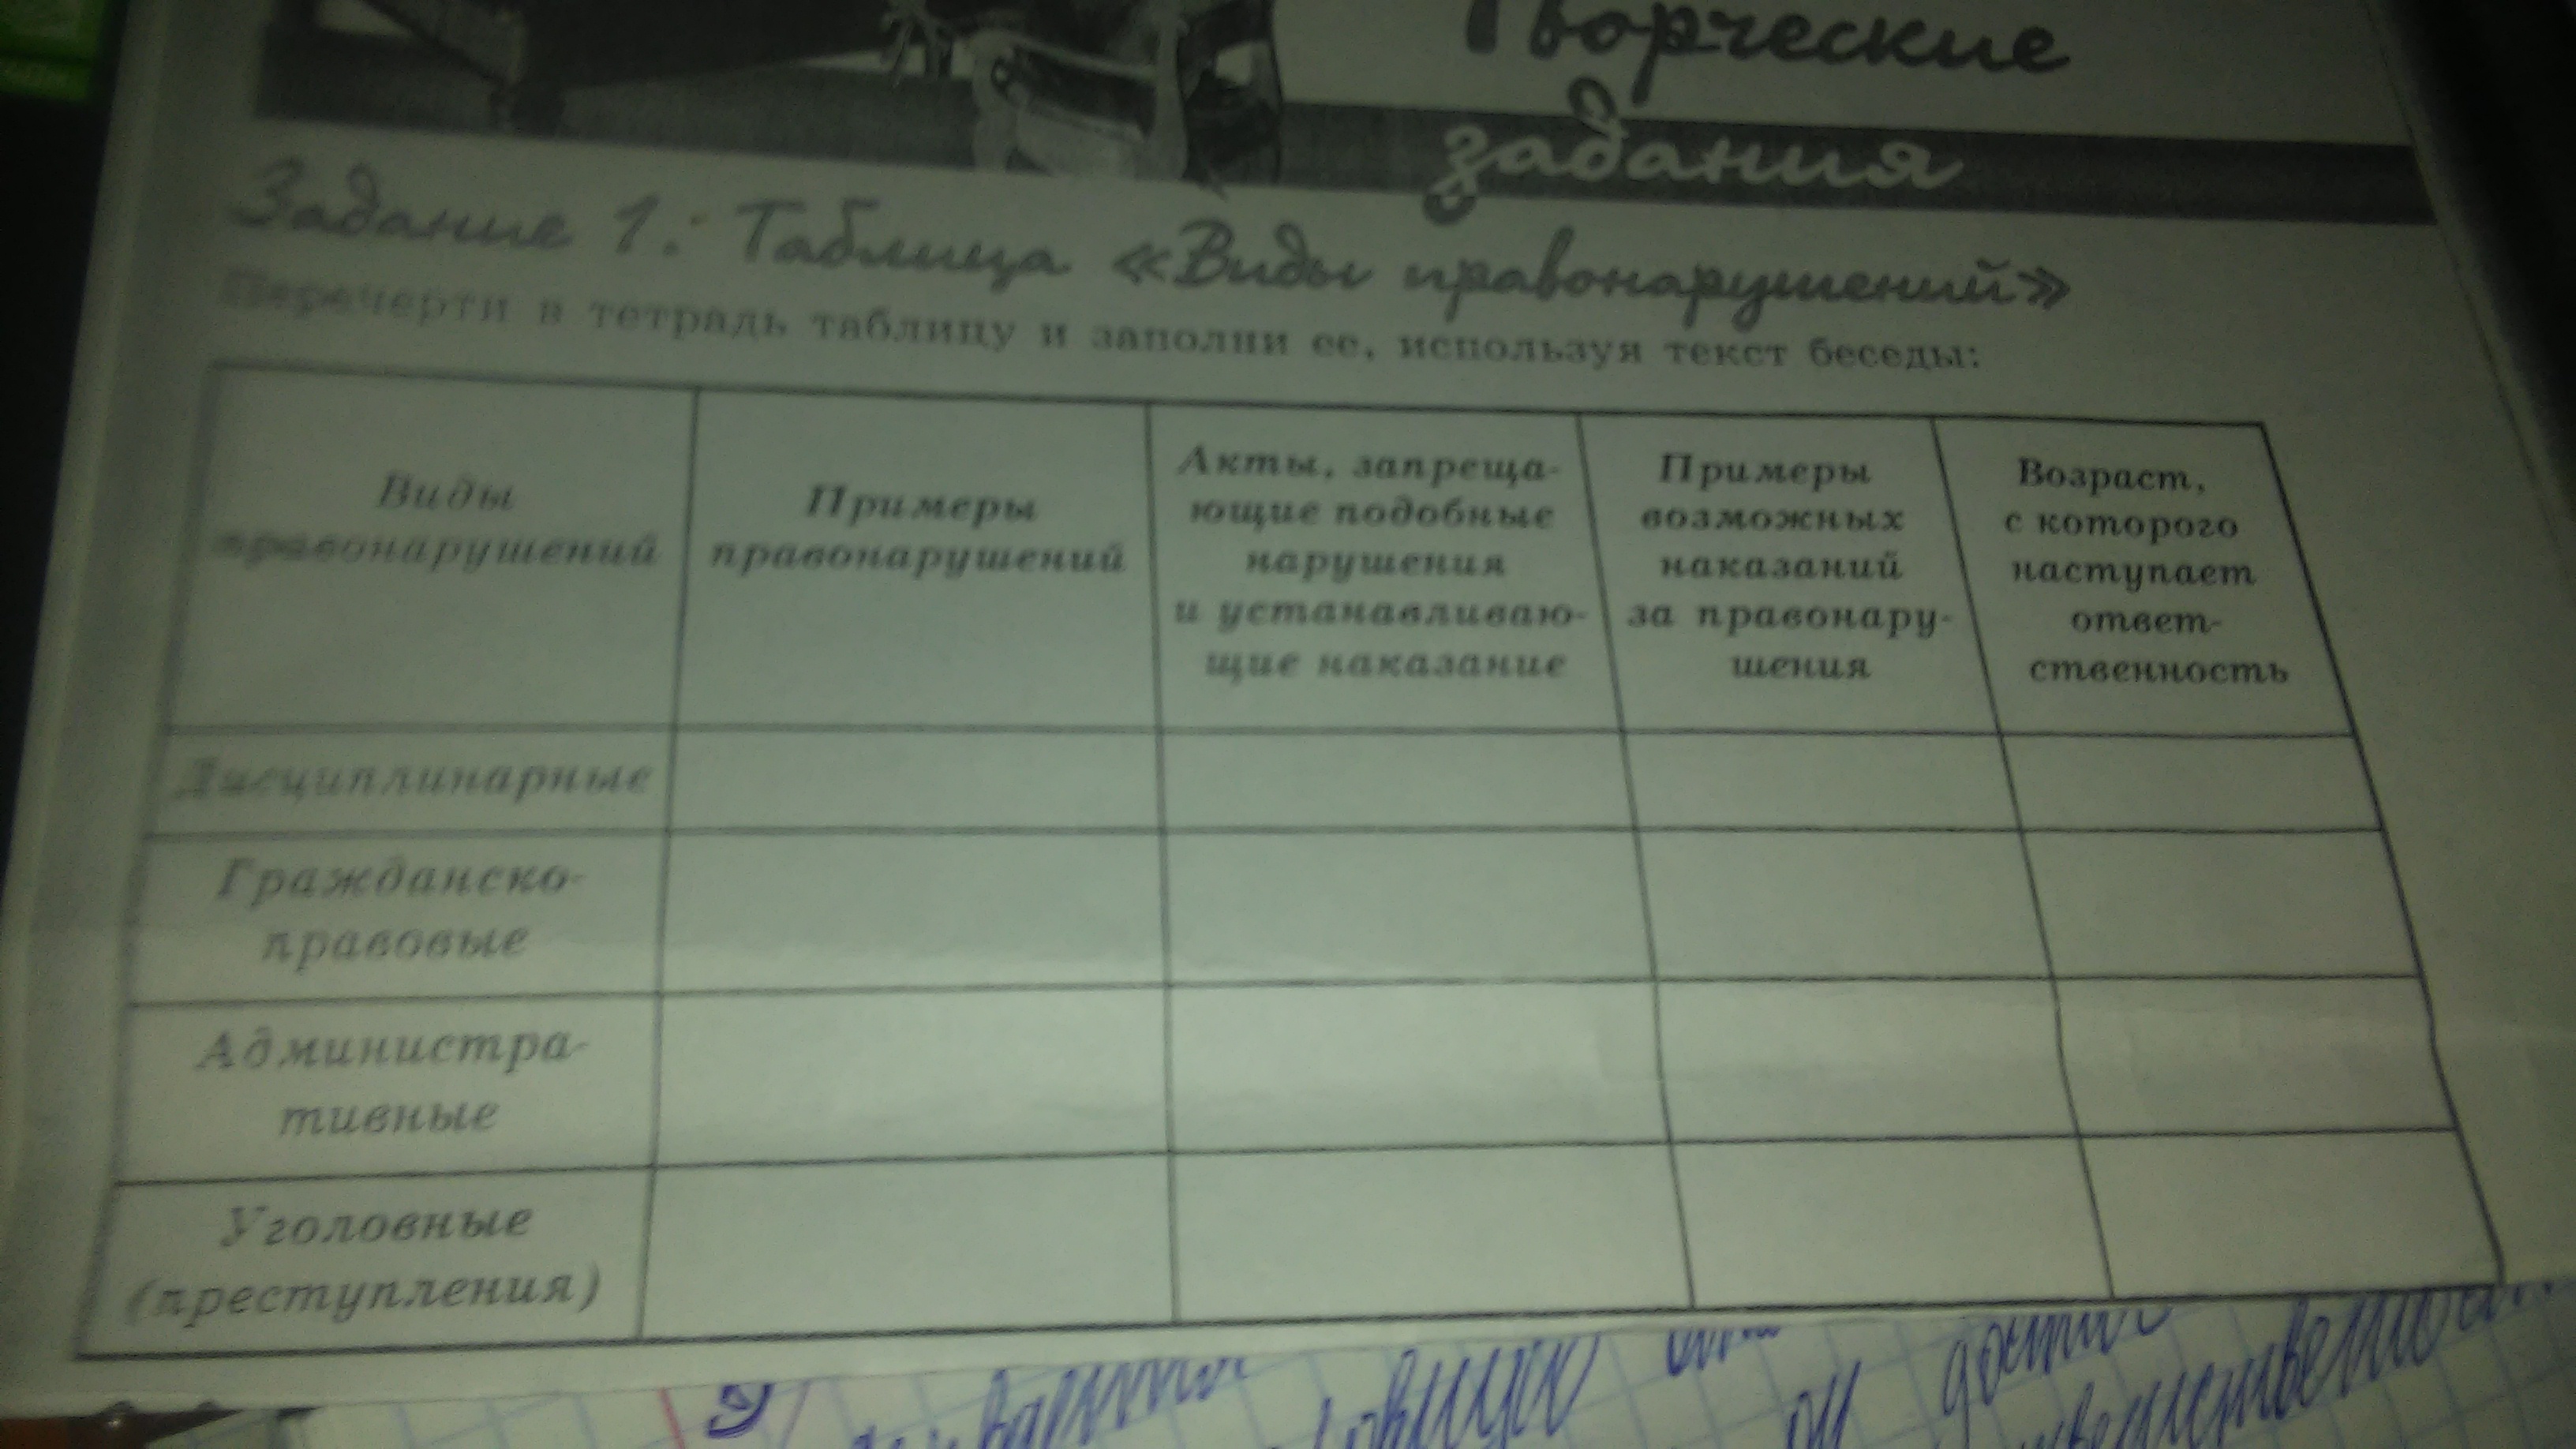 Творческие
задания
Задание 1. Таблица «Виды правонарушений»
Перечерти в тетрадь таблицу и заполни ее, используя текст беседы:
Виды
правонарушений
Примеры
правонарушений
Акты, запреща-
ющие подобные
нарушения
и устанавливаю-
щие наказание
Примеры
возможных
наказаний
за правонару-
шения
Возраст,
с которого
наступает
ответ-
ственность
Дисциплинарные
Гражданско-
правовые
Администра-
тивные
Уголовные
(преступления)